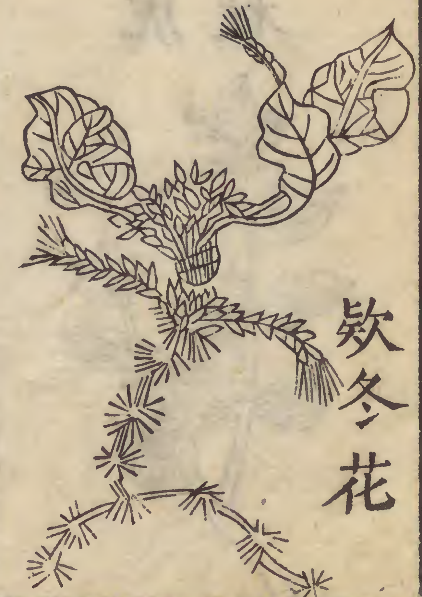 欵冬花